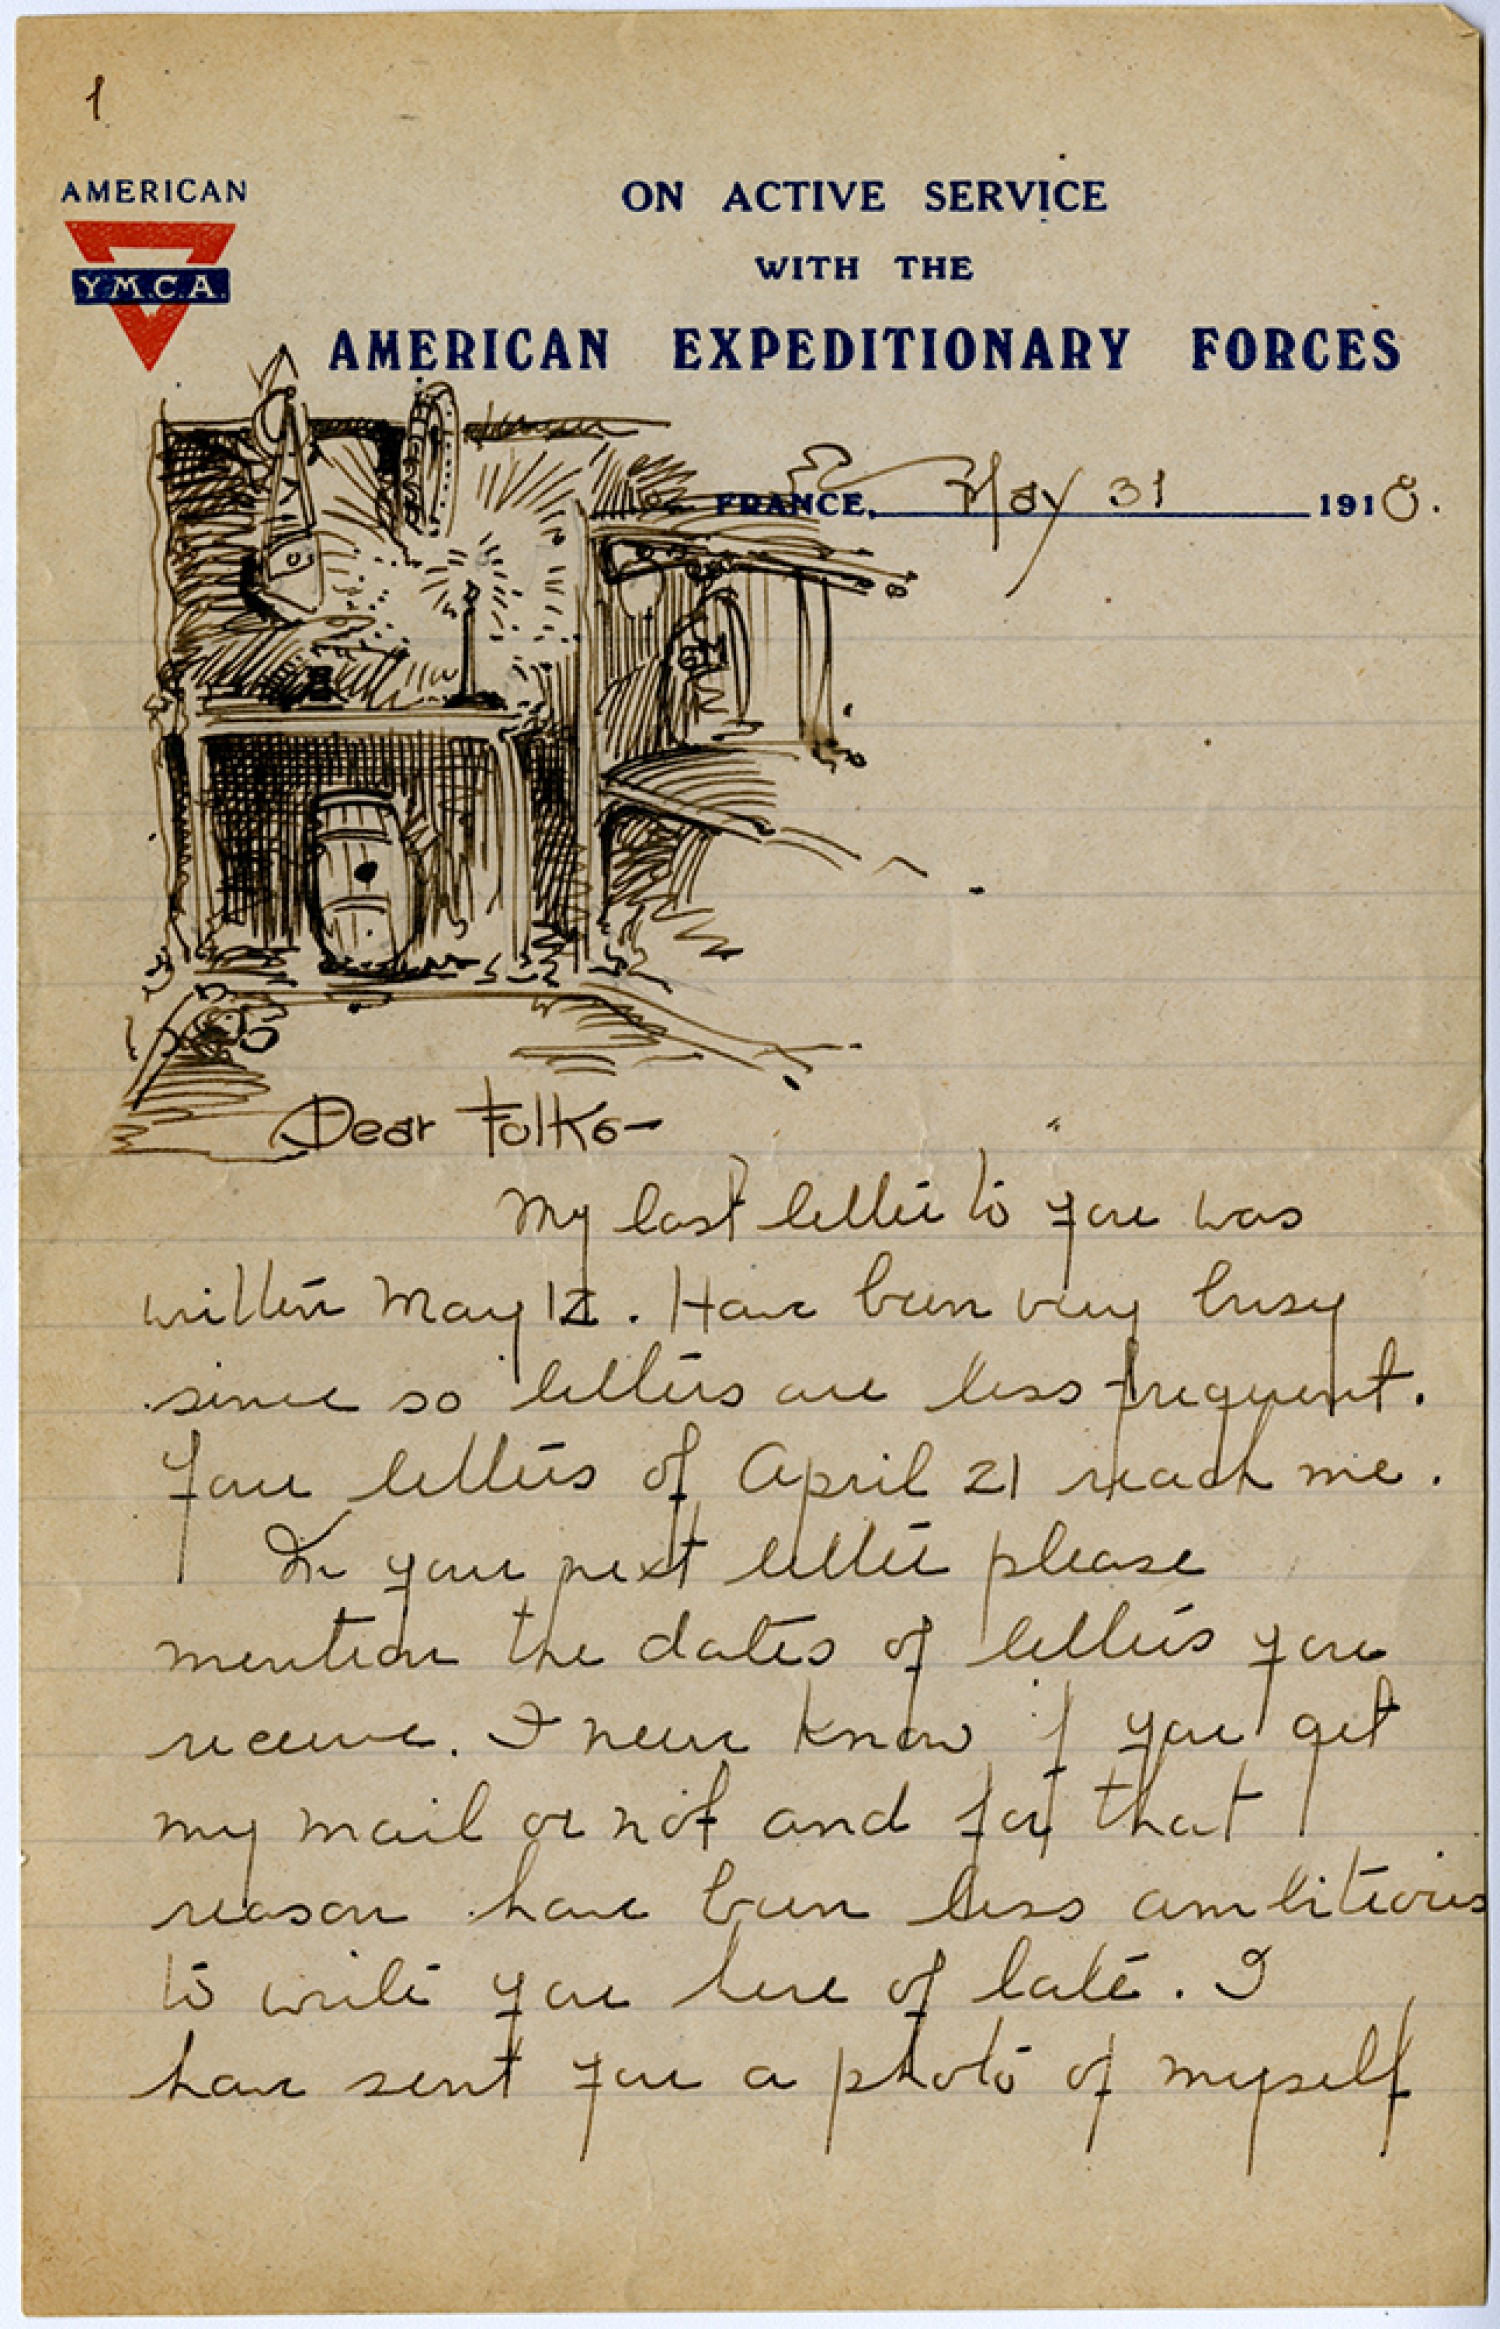 1
AMERICAN
Y.M.C.A.
ON ACTIVE SERVICE
WITH THE
AMERICAN EXPEDITIONARY FORCES
FRANCE, May 31 1918.
Dear Folks—
My last letter to you was
written May 12. Have been very busy
since so letters are less frequent.
Your letters of April 21 reach me.
In your next letter please
mention the dates of letters you
receive. I never know if you get
my mail or not and for that
reason have been less ambitious
to write you here of late. I
have sent you a photo of myself